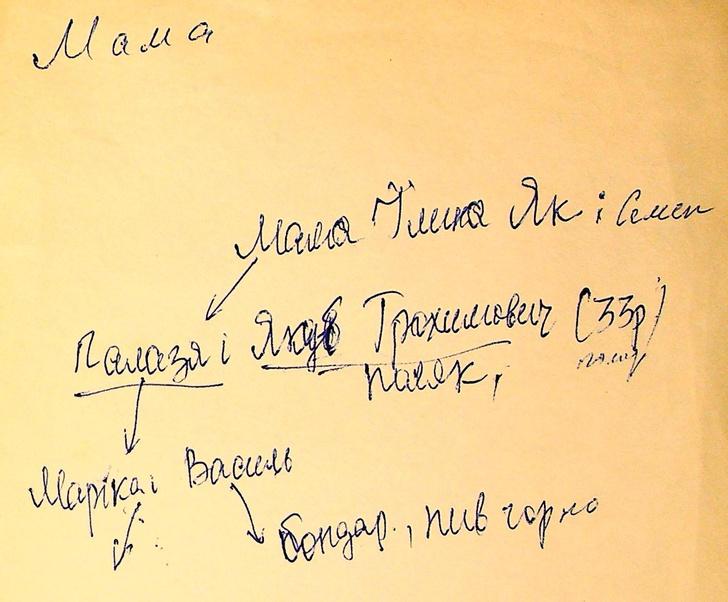 Мама
Мама Їлина Як і Семен
Палазя і Якуб Трохимович (33р)
поляк,
Маріка і Василь
бондар., пив чорно